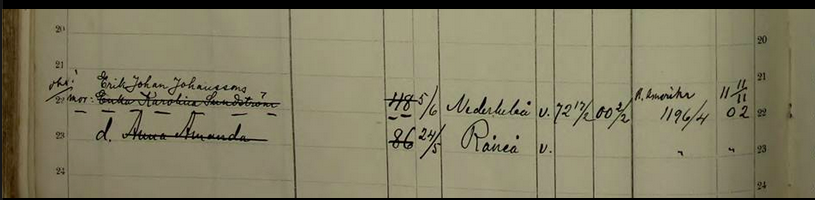 20 20
21 21
Erik Johan Johanssons
22 mor: Erika Karolina Sundström 48 5/6 Nederluleå v. 72 17/2 00 2/2 N. Amerika 1196/4 11 11/11 02 22
23 d. Anna Amanda 86 24/5 Råneå v. " " 23
24 24